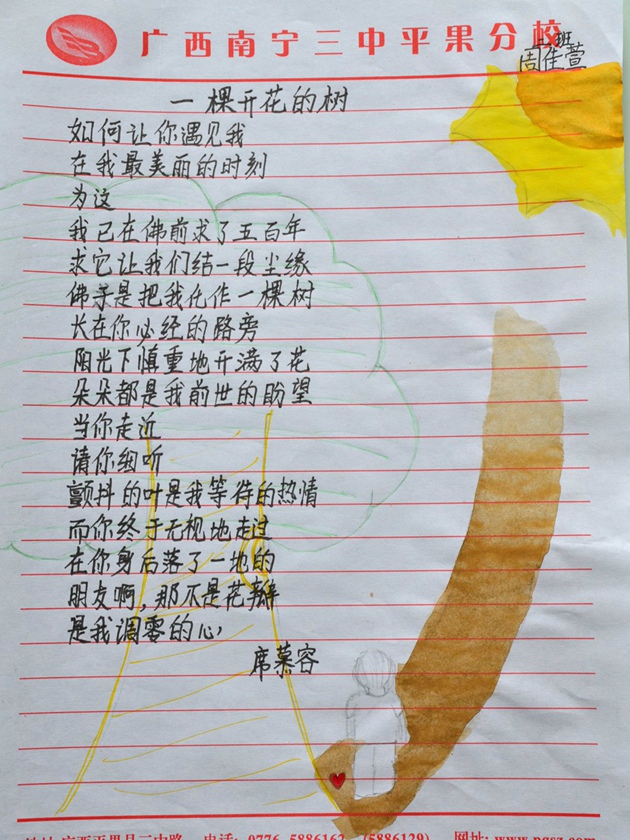 广西南宁三中平果分校
一棵开花的树
如何让你遇见我
在我最美丽的时刻
为这
我已在佛前求了五百年
求它让我们结一段尘缘
佛于是把我化作一棵树
长在你必经的路旁
阳光下慎重地开满了花
朵朵都是我前世的盼望
当你走近
请你细听
颤抖的叶是我等待的热情
而你终于无视地走过
在你身后落了一地的
朋友啊,那不是花瓣
是我凋零的心
席慕容
广西平果县三中路 电话: 0776-5886162 (5886129) 网址: www.pgsz.com